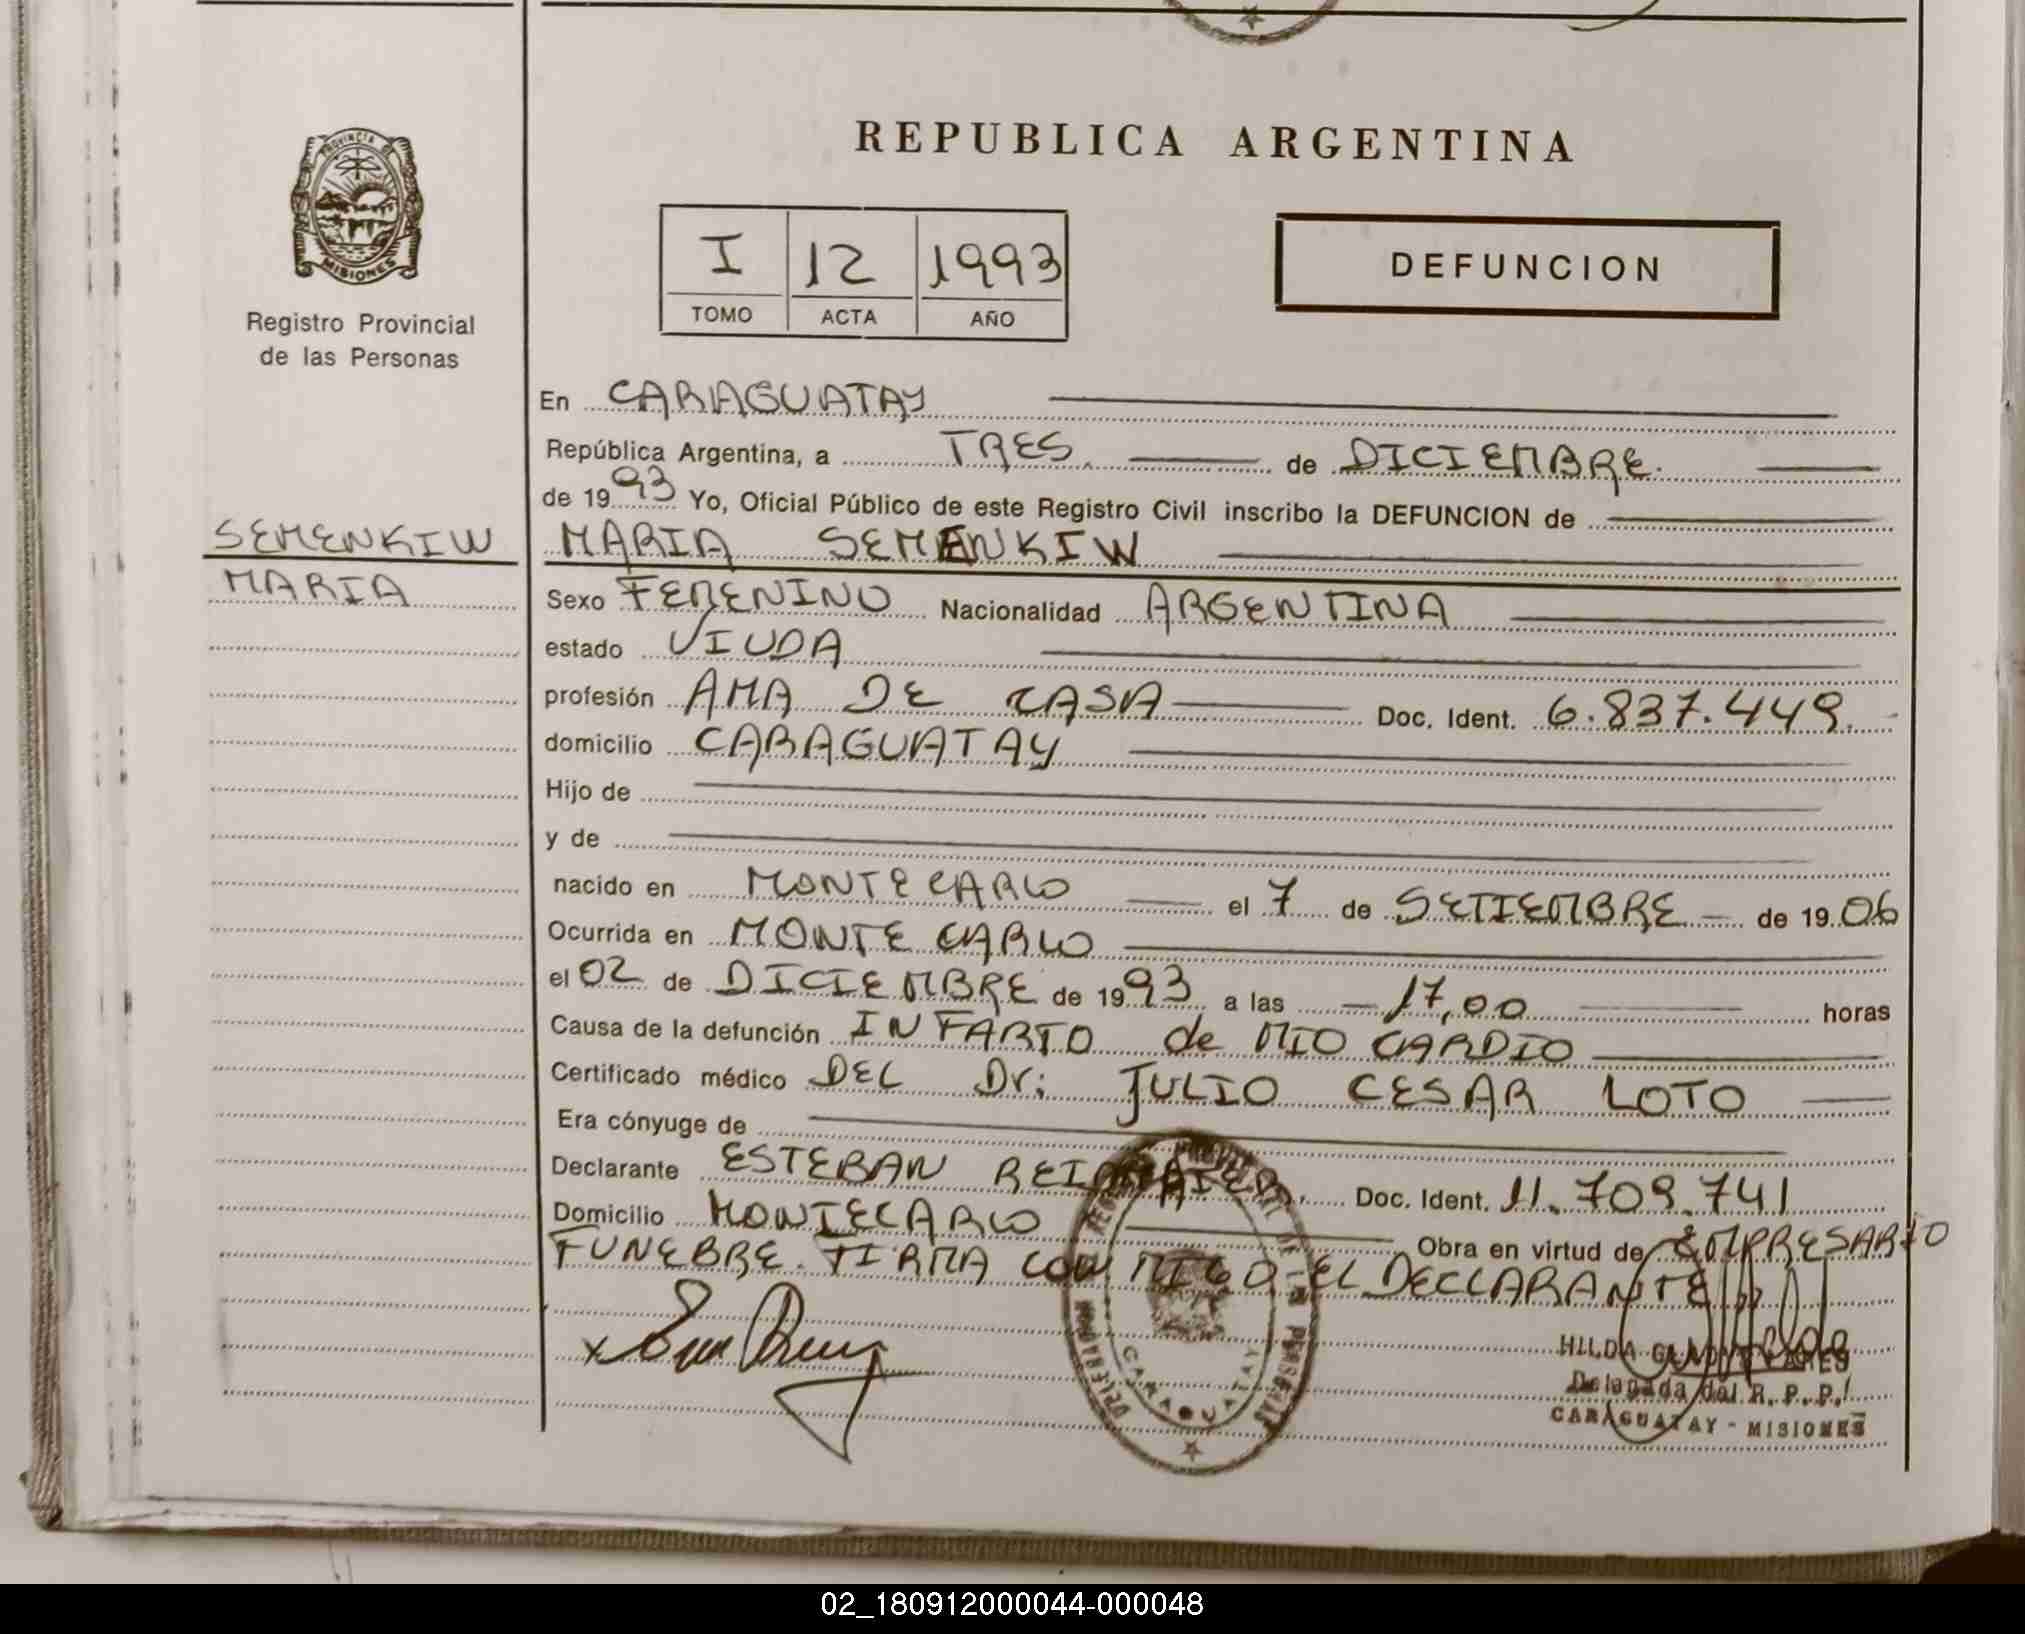 PROVINCIA DE
MISIONES
Registro Provincial
de las Personas
SEMENKIW
MARIA
REPUBLICA ARGENTINA
I 12 1993
TOMO ACTA AÑO
DEFUNCION
En CARAGUATAY
República Argentina, a TRES de DICIEMBRE
de 1993 Yo, Oficial Público de este Registro Civil inscribo la DEFUNCION de
MARIA SEMENKIW
Sexo FEMENINO Nacionalidad ARGENTINA
estado VIUDA
profesión AMA DE CASA Doc. Ident. 6.837.449.
domicilio CARAGUATAY
Hijo de
y de
nacido en MONTECARLO el 7 de SETIEMBRE de 1906
Ocurrida en MONTE CARLO
el 02 de DICIEMBRE de 1993 a las 17,00 horas
Causa de la defunción INFARTO de MIO CARDIO
Certificado médico DEL Dr: JULIO CESAR LOTO
Era cónyuge de
Declarante ESTEBAN Doc. Ident. 11.709.741
Domicilio MONTECARLO Obra en virtud de EMPRESARIO
FUNEBRE. FIRMA CONMIGO EL DECLARANTE
HILDA
Delegada del R. P. P.
CARAGUATAY - MISIONES
CARAGUATAY
02_180912000044-000048